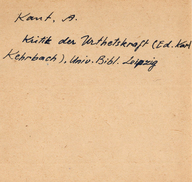 Kant, A.
Kritik der Urtheilskraft (Ed. Karl
Kehrbach), Univ. Bibl. Leipzig